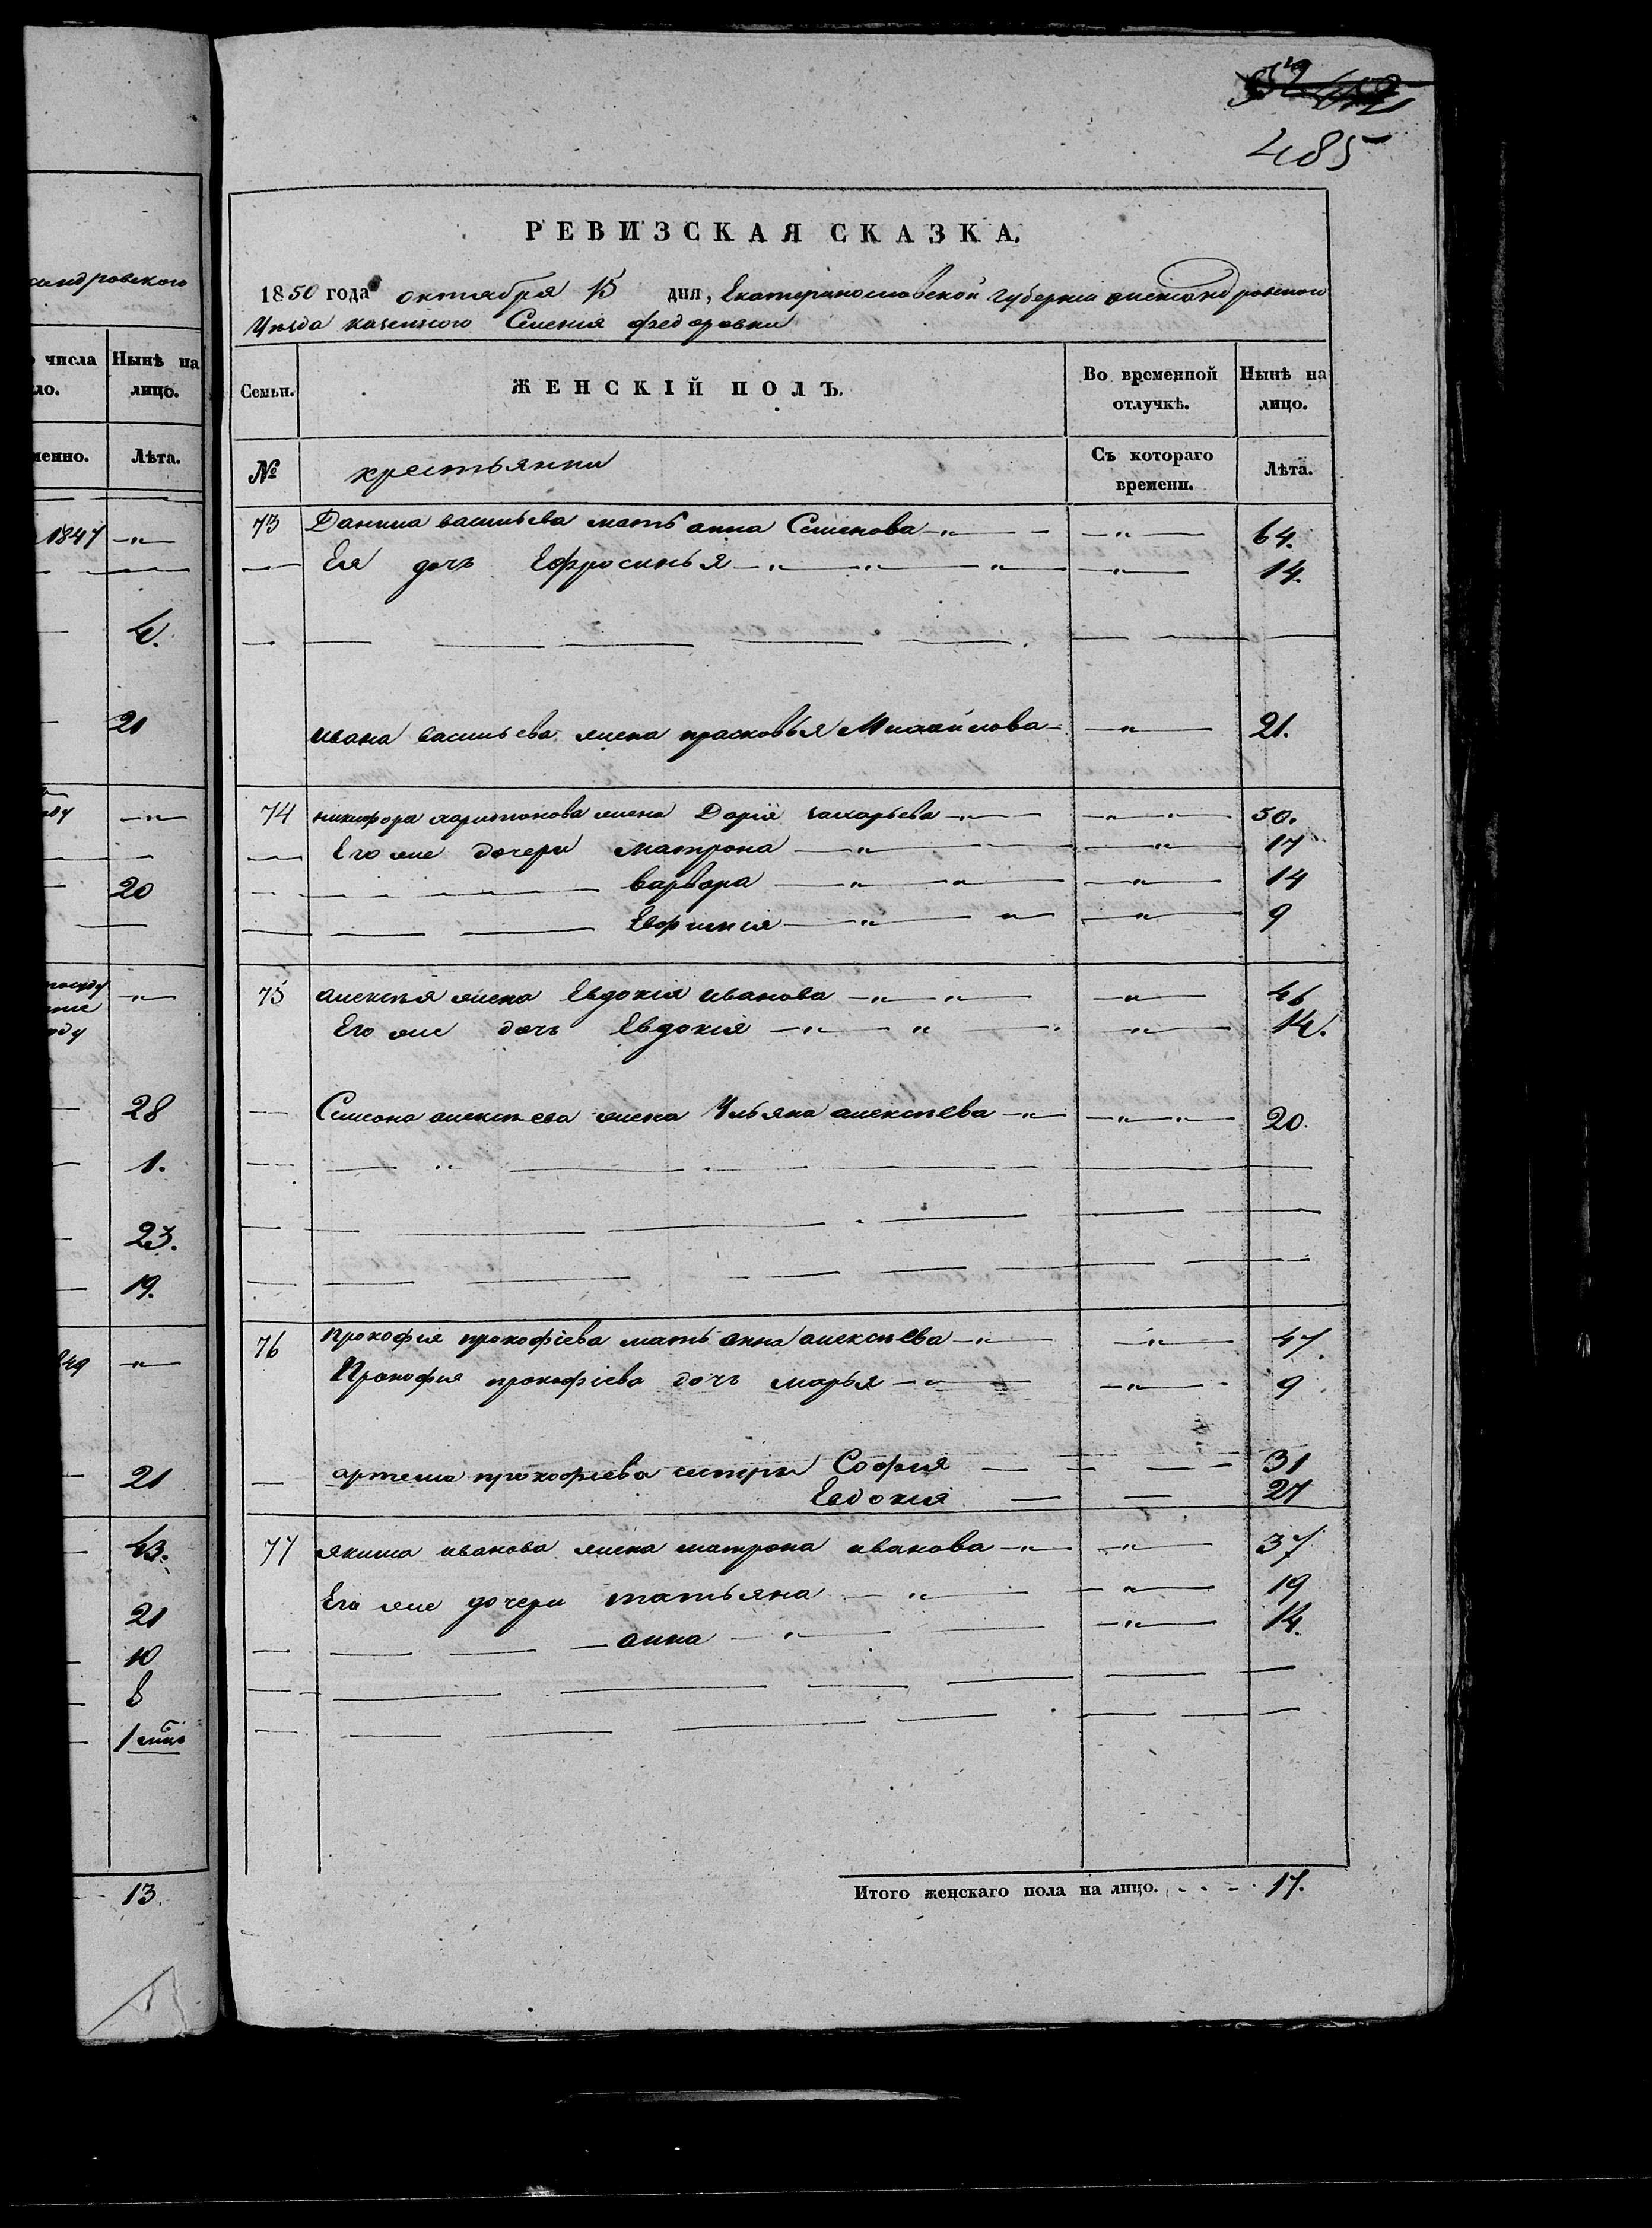 сандровскаго
числа Нынѣ на
ло. лицо.
менно. Лѣта.
1847 —"—
4.
21
—"—
20
—"—
28
1.
23.
19.
—"—
21
43.
21
10
8
13.
485
РЕВИЗСКАЯ СКАЗКА.
1850 года октября 15 дня, Екатеринославской губерніи александровского
Уезда казенного Селенія федоровки
Семьи. ЖЕНСКІЙ ПОЛЪ. Во временной отлучкѣ. Нынѣ на лицо.
№ крестьянки Съ котораго времени. Лѣта.
73 Данила васильева мать анна Семенова —"— —"— 64.
Ея дочь Ефросинья —"— —"— 14.
ивана васильева жена прасковья Михайлова —"— 21.
74 никифора харитонова жена Дарія захарьева —"— —"— 50.
Его же дочери матрона —"— —"— 17
варвара —"— —"— 14
Евфимія —"— —"— 9
75 алексѣя жена Евдокія иванова —"— —"— 46
Его же дочь Евдокія —"— —"— 14.
Семиона алексѣева жена Ульяна алексѣева —"— —"— 20.
76 прокофія прокофіева мать анна алексѣева —"— —"— 47.
Прокофия прокофіева дочь марья —"— —"— 9
артема прокофіева сестры София — — 31
Евдокия — — 27
77 якима иванова жена матрона иванова —"— —"— 37
Его же дочери татьяна —"— —"— 19
анна —"— —"— 14.
Итого женскаго пола на лицо. 17.